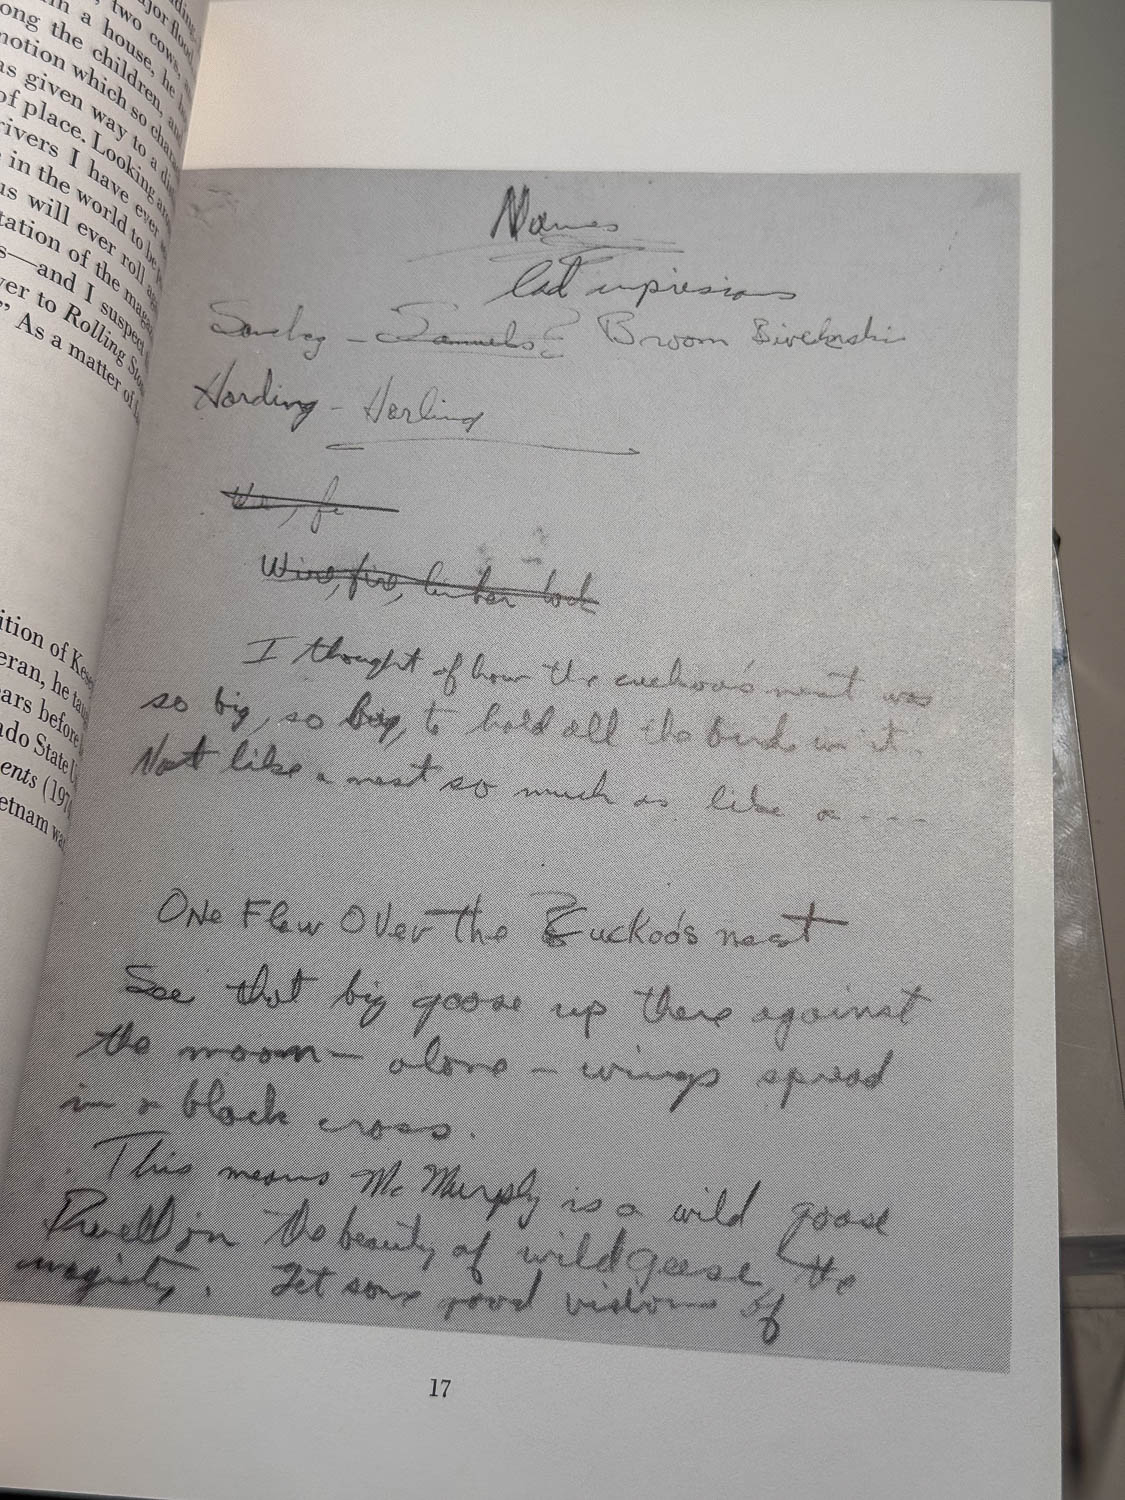 ding,
jor flood
, two cows,
in a house, he
ong the children, and
motion which so charac
as given way to a di
of place. Looking
rivers I have ever
in the world to be
us will ever roll
tation of the maga
s—and I suspect
yer to Rolling Sto
” As a matter of
ition of Kes
eran, he
ars before
ado State U
ents (197
etnam wa
Names
last impressions
Harding - Harling
Wire, fire, limber lock
I thought of how the cuckoo's nest was
so big, so big, to hold all the birds in it.
Not like a nest so much as like a ....
One Flew Over the Cuckoo's nest
See that big goose up there against
the moon — alone — wings spread
in a black cross.
This means McMurphy is a wild goose
Dwell on the beauty of wild geese, the
magisty. Get some good visions of
17